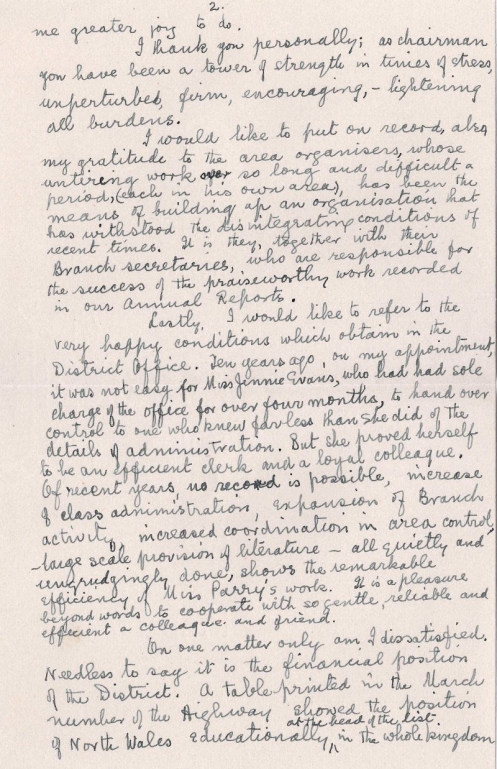 2.
me greater joy to do.
I thank you personally; as chairman
you have been a tower of strength in times of stress,
unperturbed, firm, encouraging, - lightening
all burdens.
I would like to put on record, also
my gratitude to the area organisers, whose
untiring work over so long and difficult a
period, (each in his own area), has been the
means of building up an organisation that
has withstood the disintegrating conditions of
recent times. It is they, together with their
Branch secretaries, who are responsible for
the success of the praiseworthy work recorded
in our Annual Reports.
Lastly, I would like to refer to the
very happy conditions which obtain in the
District Office. Ten years ago, on my appointment,
it was not easy for Miss Jennie Evans, who had had sole
charge of the office for over four months, to hand over
control to one who knew far less than she did of the
details of administration. But she proved herself
to be an efficient clerk and a loyal colleague.
Of recent years, no record is possible, increase
of class administration, expansion of Branch
activity, increased coordination in area control,
-large scale provision of literature - all quietly and
ungrudgingly done, shows the remarkable
efficiency of Miss Parry's work. It is a pleasure
beyond words to cooperate with so gentle, reliable and
efficient a colleague and friend.
On one matter only am I dissatisfied.
Needless to say it is the financial position
of the District. A table printed in the March
number of the Highway showed the position
at the head of the list.
of North Wales educationally, in the whole kingdom